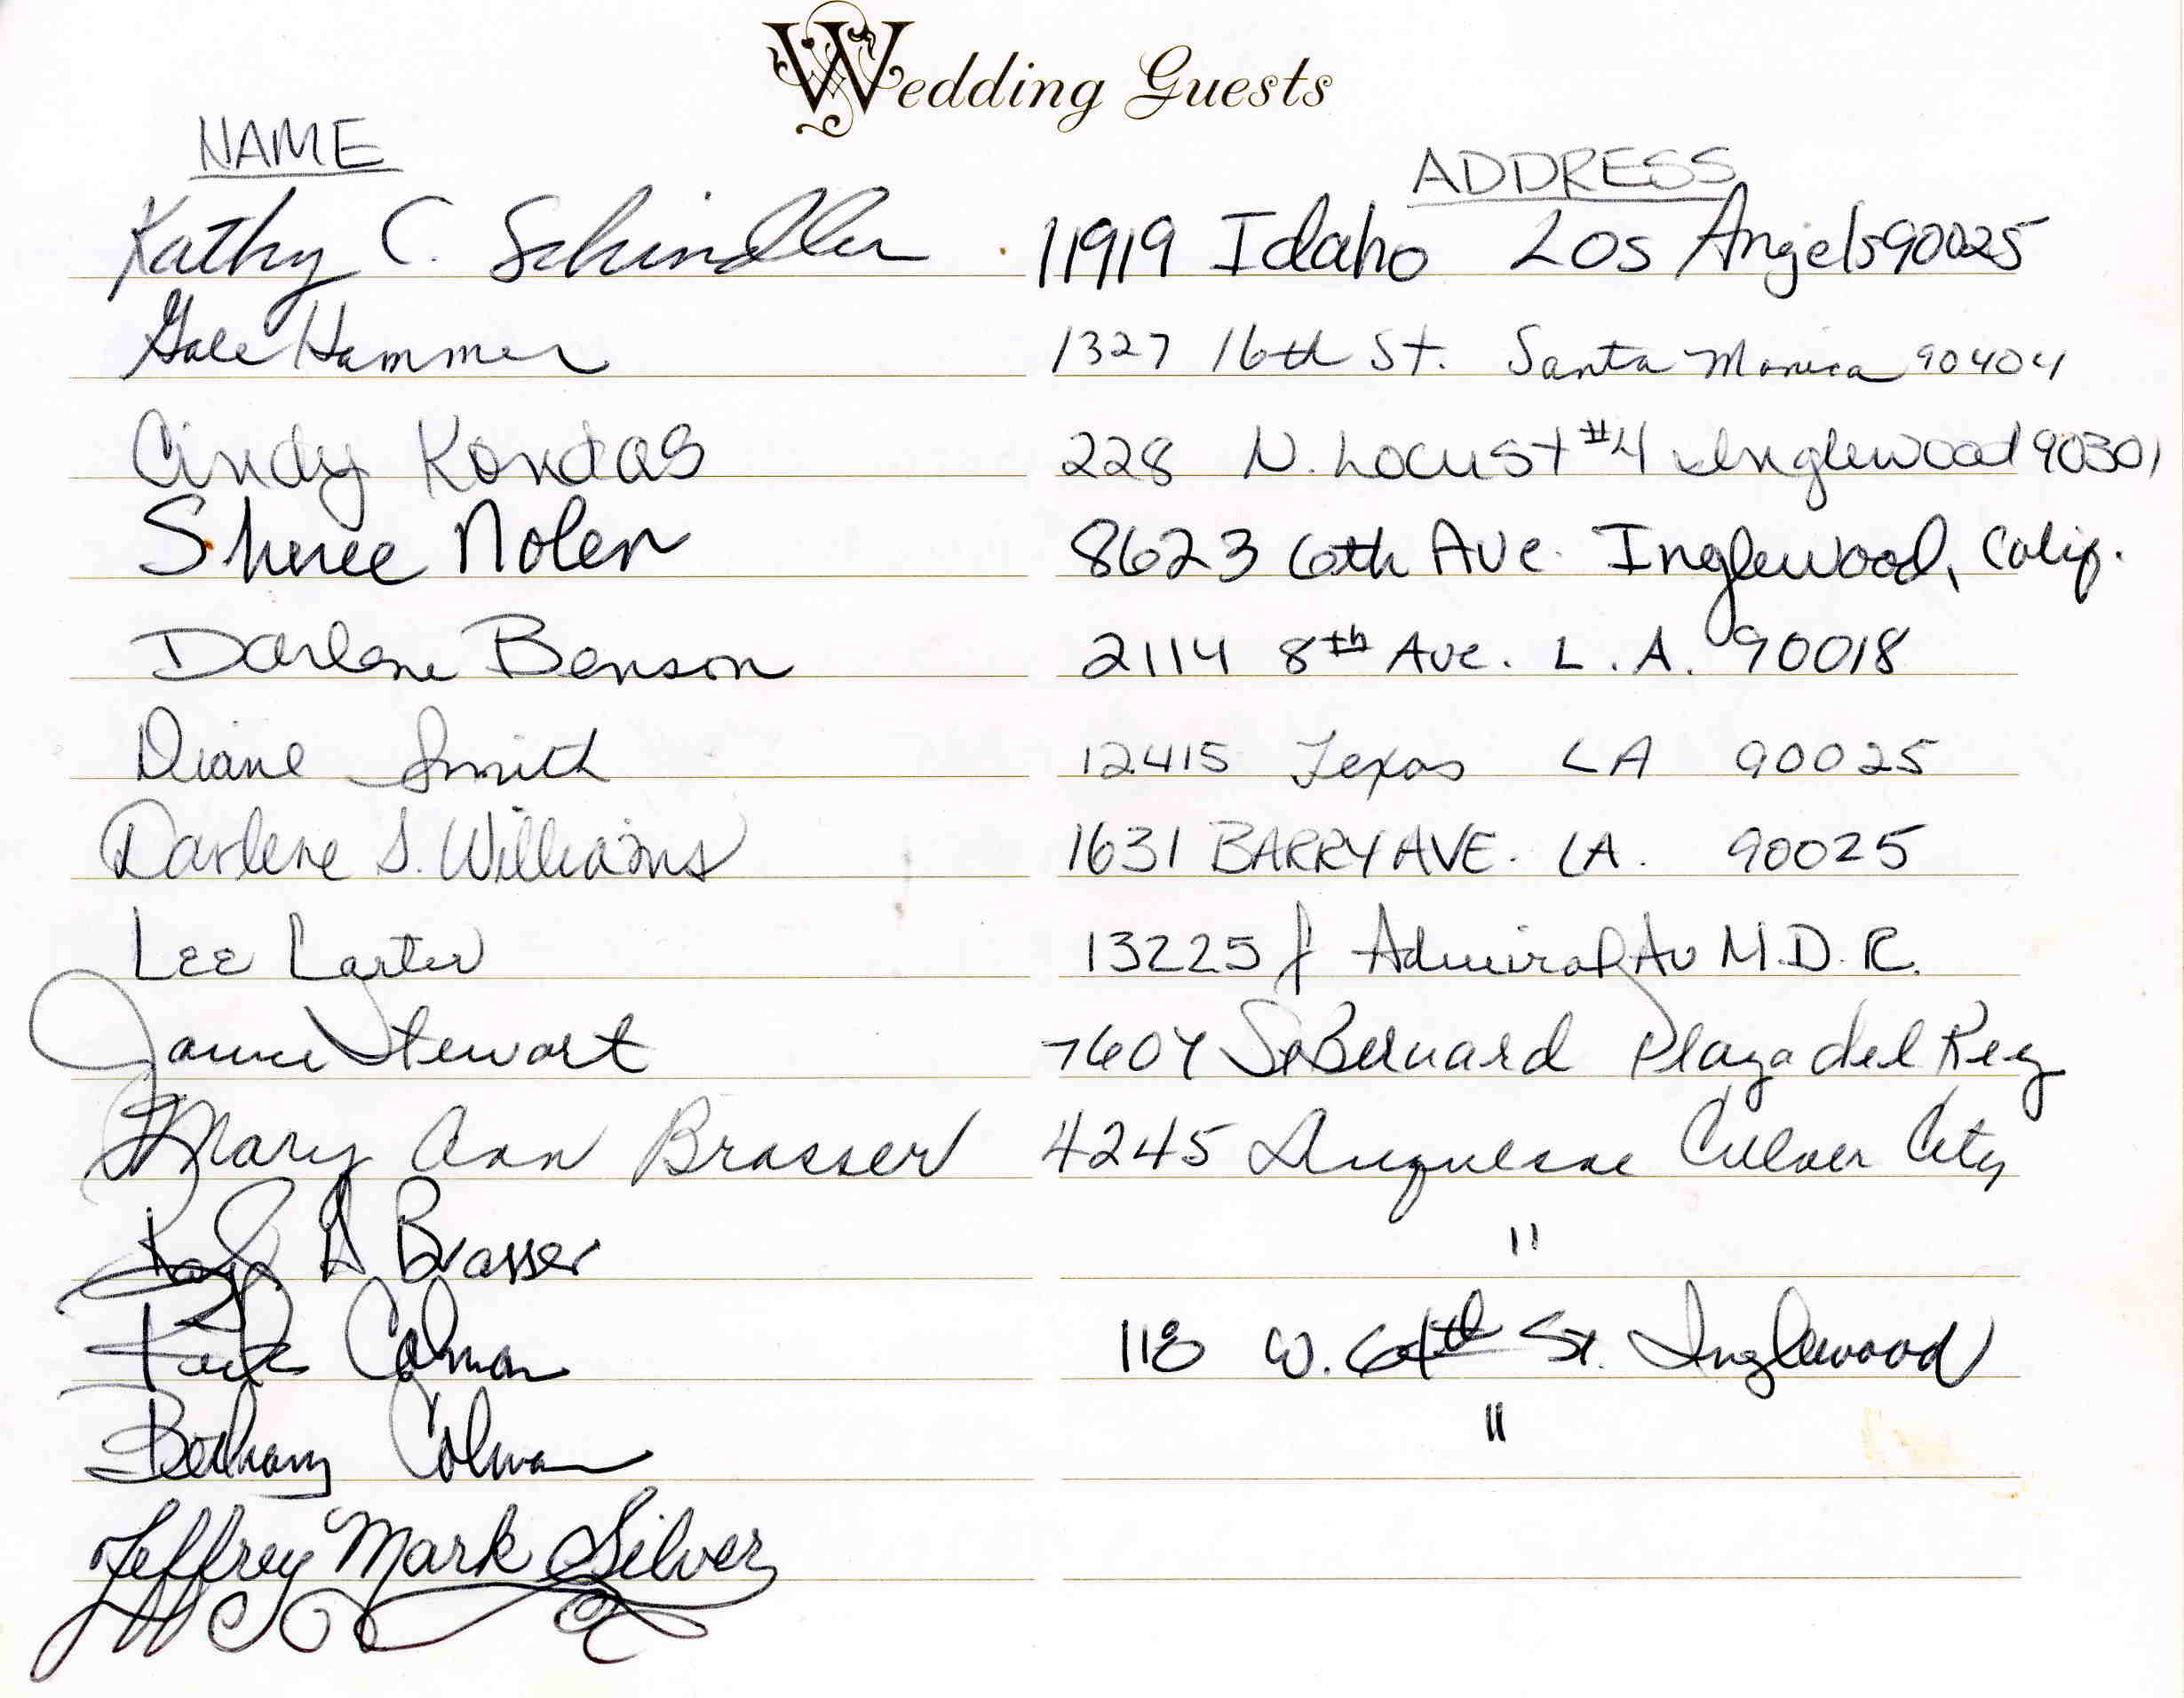 Wedding Guests
NAME ADDRESS
Kathy C. Schindler 11919 Idaho Los Angels 90025
Gale Hammer 1327 16th St. Santa Monica 90404
Cindy Kondas 228 N. Locust #4 Inglewood 90301
Nolen 8623 6th Ave. Inglewood, Calif.
Darlene Benson 2114 8th Ave. L.A. 90018
Diane Smith 12415 Texas LA 90025
Darlene S. Williams 1631 BARRY AVE. LA. 90025
LEE Carter 13225 Admiral Av M.D.R.
Stewart 7604 Bernard Playa del Rey
Mary Ann Brasser 4245 Duquesne Culver City
Brasser "
Colman 118 W. 64th St. Inglewood
Bethany Colman "
Jeffrey Mark Silver